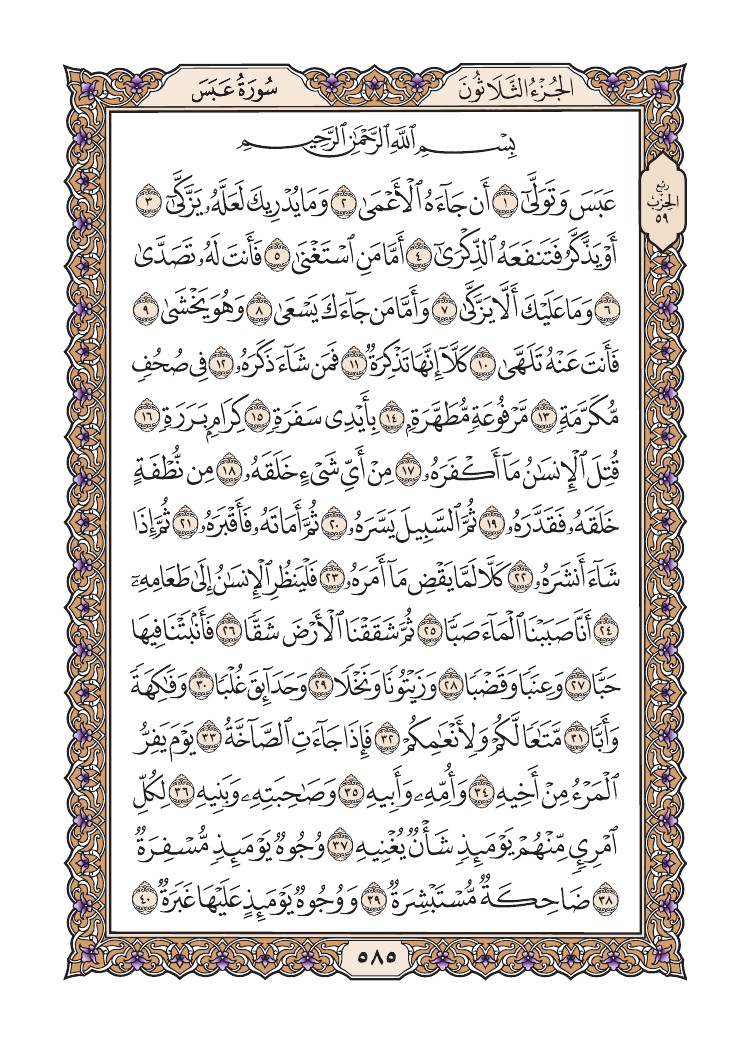 الجُزْءُ الثَّلَاثُونَ
سُورَةُ عَبَسَ
رُبع
الحِزب
٥٩
بِسْمِ ٱللَّهِ ٱلرَّحْمَٰنِ ٱلرَّحِيمِ
عَبَسَ وَتَوَلَّىٰٓ ١ أَن جَآءَهُ ٱلْأَعْمَىٰ ٢ وَمَا يُدْرِيكَ لَعَلَّهُۥ يَزَّكَّىٰٓ ٣
أَوْ يَذَّكَّرُ فَتَنفَعَهُ ٱلذِّكْرَىٰٓ ٤ أَمَّا مَنِ ٱسْتَغْنَىٰ ٥ فَأَنتَ لَهُۥ تَصَدَّىٰ
٦ وَمَا عَلَيْكَ أَلَّا يَزَّكَّىٰ ٧ وَأَمَّا مَن جَآءَكَ يَسْعَىٰ ٨ وَهُوَ يَخْشَىٰ ٩
فَأَنتَ عَنْهُ تَلَهَّىٰ ١٠ كَلَّآ إِنَّهَا تَذْكِرَةٌ ١١ فَمَن شَآءَ ذَكَرَهُۥ ١٢ فِى صُحُفٍ
مُّكَرَّمَةٍ ١٣ مَّرْفُوعَةٍ مُّطَهَّرَةٍۭ ١٤ بِأَيْدِى سَفَرَةٍ ١٥ كِرَامٍۭ بَرَرَةٍ ١٦
قُتِلَ ٱلْإِنسَٰنُ مَآ أَكْفَرَهُۥ ١٧ مِنْ أَىِّ شَىْءٍ خَلَقَهُۥ ١٨ مِن نُّطْفَةٍ
خَلَقَهُۥ فَقَدَّرَهُۥ ١٩ ثُمَّ ٱلسَّبِيلَ يَسَّرَهُۥ ٢٠ ثُمَّ أَمَاتَهُۥ فَأَقْبَرَهُۥ ٢١ ثُمَّ إِذَا
شَآءَ أَنشَرَهُۥ ٢٢ كَلَّا لَمَّا يَقْضِ مَآ أَمَرَهُۥ ٢٣ فَلْيَنظُرِ ٱلْإِنسَٰنُ إِلَىٰ طَعَامِهِۦٓ
٢٤ أَنَّا صَبَبْنَا ٱلْمَآءَ صَبًّا ٢٥ ثُمَّ شَقَقْنَا ٱلْأَرْضَ شَقًّا ٢٦ فَأَنۢبَتْنَا فِيهَا
حَبًّا ٢٧ وَعِنَبًا وَقَضْبًا ٢٨ وَزَيْتُونًا وَنَخْلًا ٢٩ وَحَدَآئِقَ غُلْبًا ٣٠ وَفَٰكِهَةً
وَأَبًّا ٣١ مَّتَٰعًا لَّكُمْ وَلِأَنْعَٰمِكُمْ ٣٢ فَإِذَا جَآءَتِ ٱلصَّآخَّةُ ٣٣ يَوْمَ يَفِرُّ
ٱلْمَرْءُ مِنْ أَخِيهِ ٣٤ وَأُمِّهِۦ وَأَبِيهِ ٣٥ وَصَٰحِبَتِهِۦ وَبَنِيهِ ٣٦ لِكُلِّ
ٱمْرِئٍ مِّنْهُمْ يَوْمَئِذٍ شَأْنٌ يُغْنِيهِ ٣٧ وُجُوهٌ يَوْمَئِذٍ مُّسْفِرَةٌ
٣٨ ضَاحِكَةٌ مُّسْتَبْشِرَةٌ ٣٩ وَوُجُوهٌ يَوْمَئِذٍ عَلَيْهَا غَبَرَةٌ ٤٠
٥٨٥